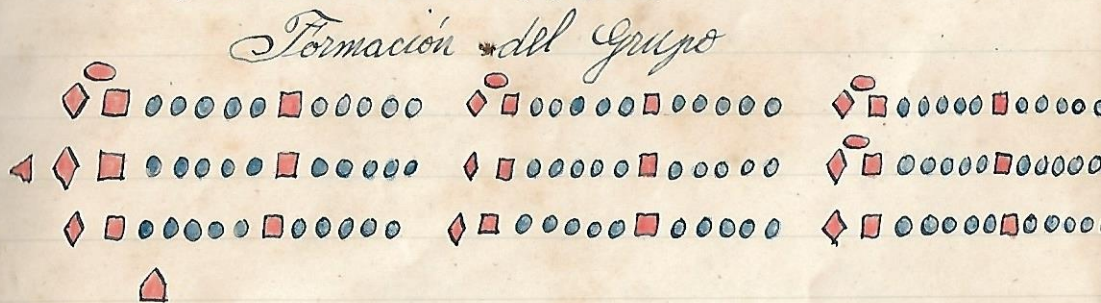 Formación del Grupo